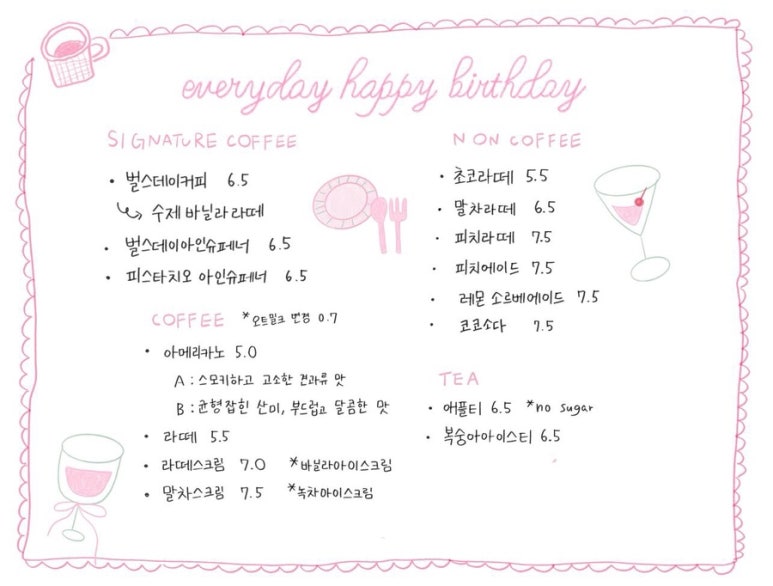 everyday happy birthday
SIGNATURE COFFEE
• 벌스데이커피 6.5
수제 바닐라 라떼
• 벌스데이아인슈페너 6.5
• 피스타치오 아인슈페너 6.5
COFFEE *오트밀크 변경 0.7
• 아메리카노 5.0
A : 스모키하고 고소한 견과류 맛
B : 균형잡힌 산미, 부드럽고 달콤한 맛
• 라떼 5.5
• 라떼스크림 7.0 *바닐라아이스크림
• 말차스크림 7.5 *녹차아이스크림
NON COFFEE
• 초코라떼 5.5
• 말차라떼 6.5
• 피치라떼 7.5
• 피치에이드 7.5
• 레몬 소르베에이드 7.5
• 코코소다 7.5
TEA
• 애플티 6.5 *no sugar
• 복숭아아이스티 6.5